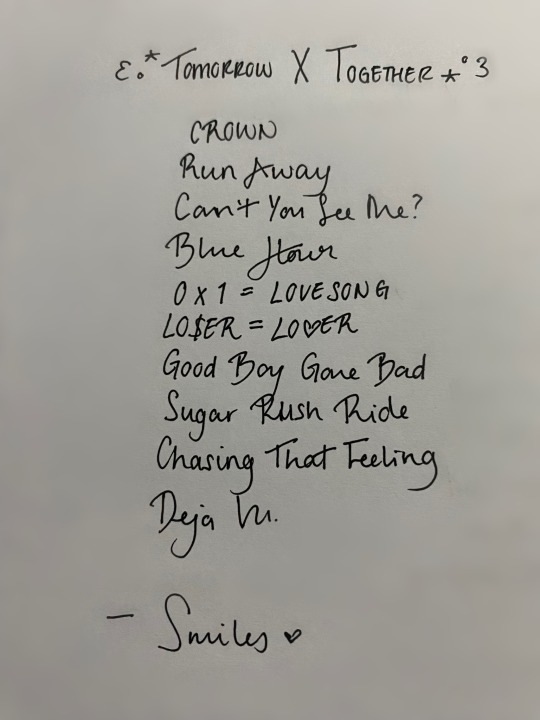 ε.* TOMORROW X TOGETHER ⋆°3
CROWN
Run Away
Can't You See Me?
Blue Hour
0 X 1 = LOVESONG
LO$ER = LO♡ER
Good Boy Gone Bad
Sugar Rush Ride
Chasing That Feeling
Deja Vu.
– Smiles ♡